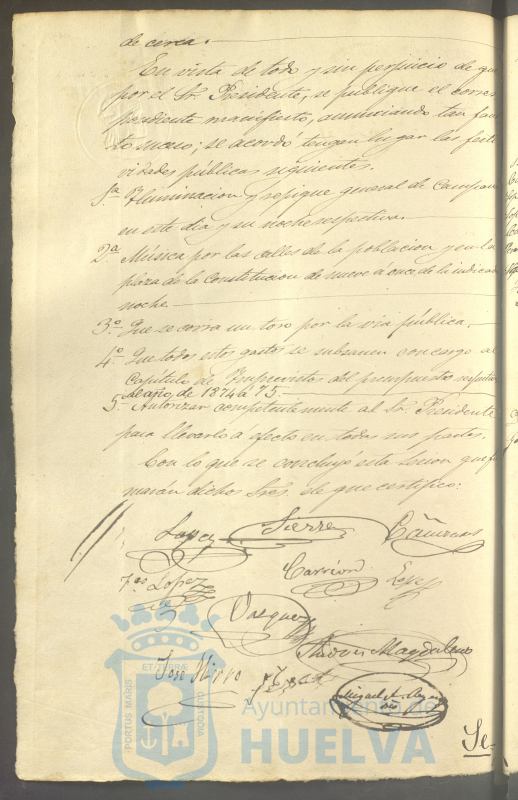 de cerca.
En vista de todo y sin perjuicio de que
por el Sr. Presidente, se publique el corres
pondiente manifiesto, anunciando tan faus
to suceso; se acordó tengan lugar las festi
vidades públicas siguientes.
1ª Iluminacion y repique general de Campan
en este dia y su noche respectiva.
2ª Música por las calles de la poblacion y en la
plaza de la Constitucion de nueve a once de la indicada
noche
3º Que se corra un toro por la via pública.
4º Que todos estos gastos se subsanen con cargo al
Capítulo de Imprevistos del presupuesto
del año de 1874 a 75.
5º Autorizar competentemente al Sr. Presidente
para llevarlo á efecto en todas sus partes.
Con lo que se concluyó esta sesion que fir
marán dichos Sres. de que certifico:
Lopez Sierra Cañizares
Fco Lopez Carrion
Vazquez
Magdaleno
José Hierro
Miguel
Se-
PORTUS MARIS
ET TERRÆ
CUSTODIA
Ayuntamiento de
HUELVA